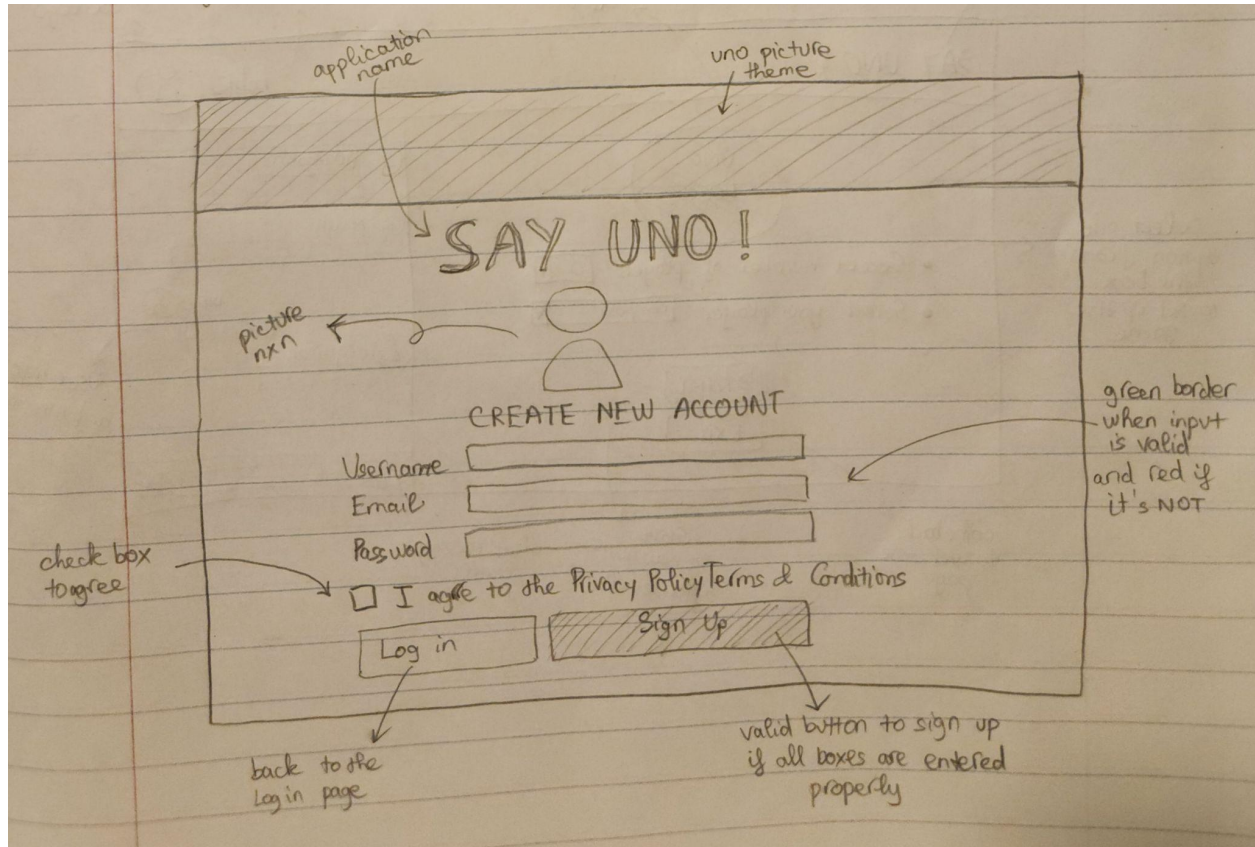 application
name
uno picture
theme
SAY UNO!
picture
nxn
CREATE NEW ACCOUNT
green border
when input
is valid
and red if
it's NOT
Username
Email
Password
check box
to agree
I agree to the Privacy Policy Terms & Conditions
Log in
Sign Up
back to the
Log in page
valid button to sign up
if all boxes are entered
properly